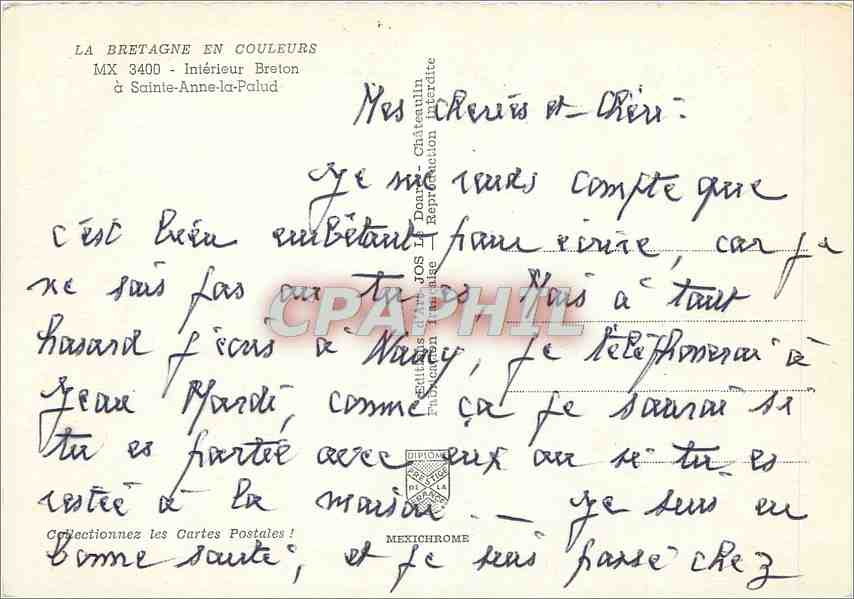 LA BRETAGNE EN COULEURS
MX 3400 - Intérieur Breton
à Sainte-Anne-la-Palud
Mes cheries et Chéri :
Je me rends compte que
c'est bien embêtant pour écrire, car je
ne sais pas ou tu es, Mais à tout
hasard j'écris à Nancy, je téléphonerai à
Jean Mardi, comme ça je saurai si
tu es partie avec eux ou si tu es
restée à la maison. _ Je suis en
bonne santé, et je suis passé chez
Editions d'Art JOS Le Doaré - Châteaulin
Fabrication française - Reproduction interdite
CPAPHIL
DIPLOME
PRESTIGE
DE LA
FRANCE
Collectionnez les Cartes Postales !
MEXICHROME